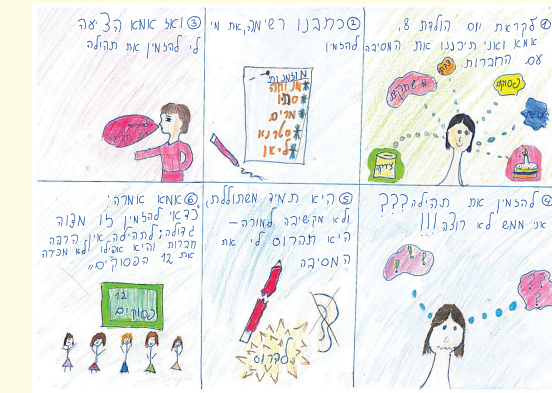 ① לקראת יום הולדת 8,
אמא ואני תיכננו את המסיבה
עם החברות
משחקים
פסוקים
② כתבנו רשימה, את מי
להזמין
מוזמנות
מנוחה
מרים
③ ואז אמא הציעה
לי להזמין את תהילה
④ להזמין את תהילה???
אני ממש לא רוצה!!!
! ! !
? ? ?
⑤ היא תמיד משתוללת,
ולא מקשיבה למורה –
היא תהרוס לי את
המסיבה
להרוס
⑥ אמא אמרה:
"כדאי להזמין זו מצוה
גדולה; לתהילה אין הרבה
חברות והיא אפילו לא מכירה
את 12 הפסוקים"
12
פסוקים